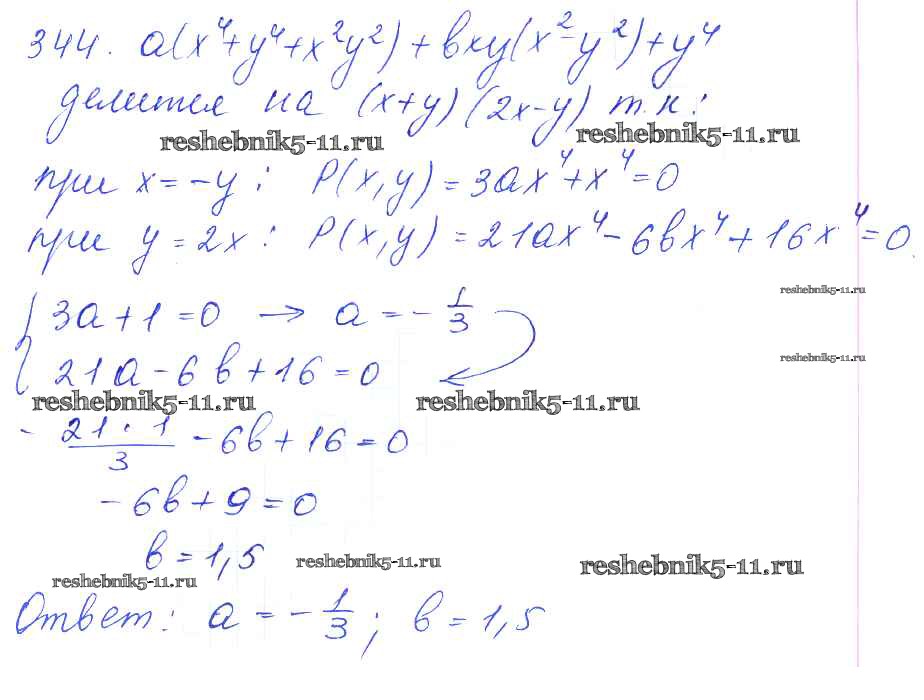 344. a(x⁴+y⁴+x²y²)+bxy(x²-y²)+y⁴
делится на (x+y)(2x-y) т.к:
reshebnik5-11.ru reshebnik5-11.ru
при x=-y: P(x,y)=3ax⁴+x⁴=0
при y=2x: P(x,y)=21ax⁴-6bx⁴+16x⁴=0
reshebnik5-11.ru
3a+1=0 → a=-1/3
reshebnik5-11.ru
21a-6b+16=0
reshebnik5-11.ru reshebnik5-11.ru
-21·1/3-6b+16=0
-6b+9=0
b=1,5
reshebnik5-11.ru reshebnik5-11.ru reshebnik5-11.ru
Ответ: a=-1/3; b=1,5